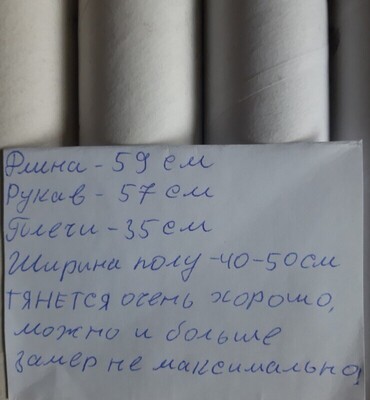 Длина - 59 см
Рукав - 57 см
Плечи - 35 см
Ширина полу - 40-50 см
тянется очень хорошо,
можно и больше
замер не максимально